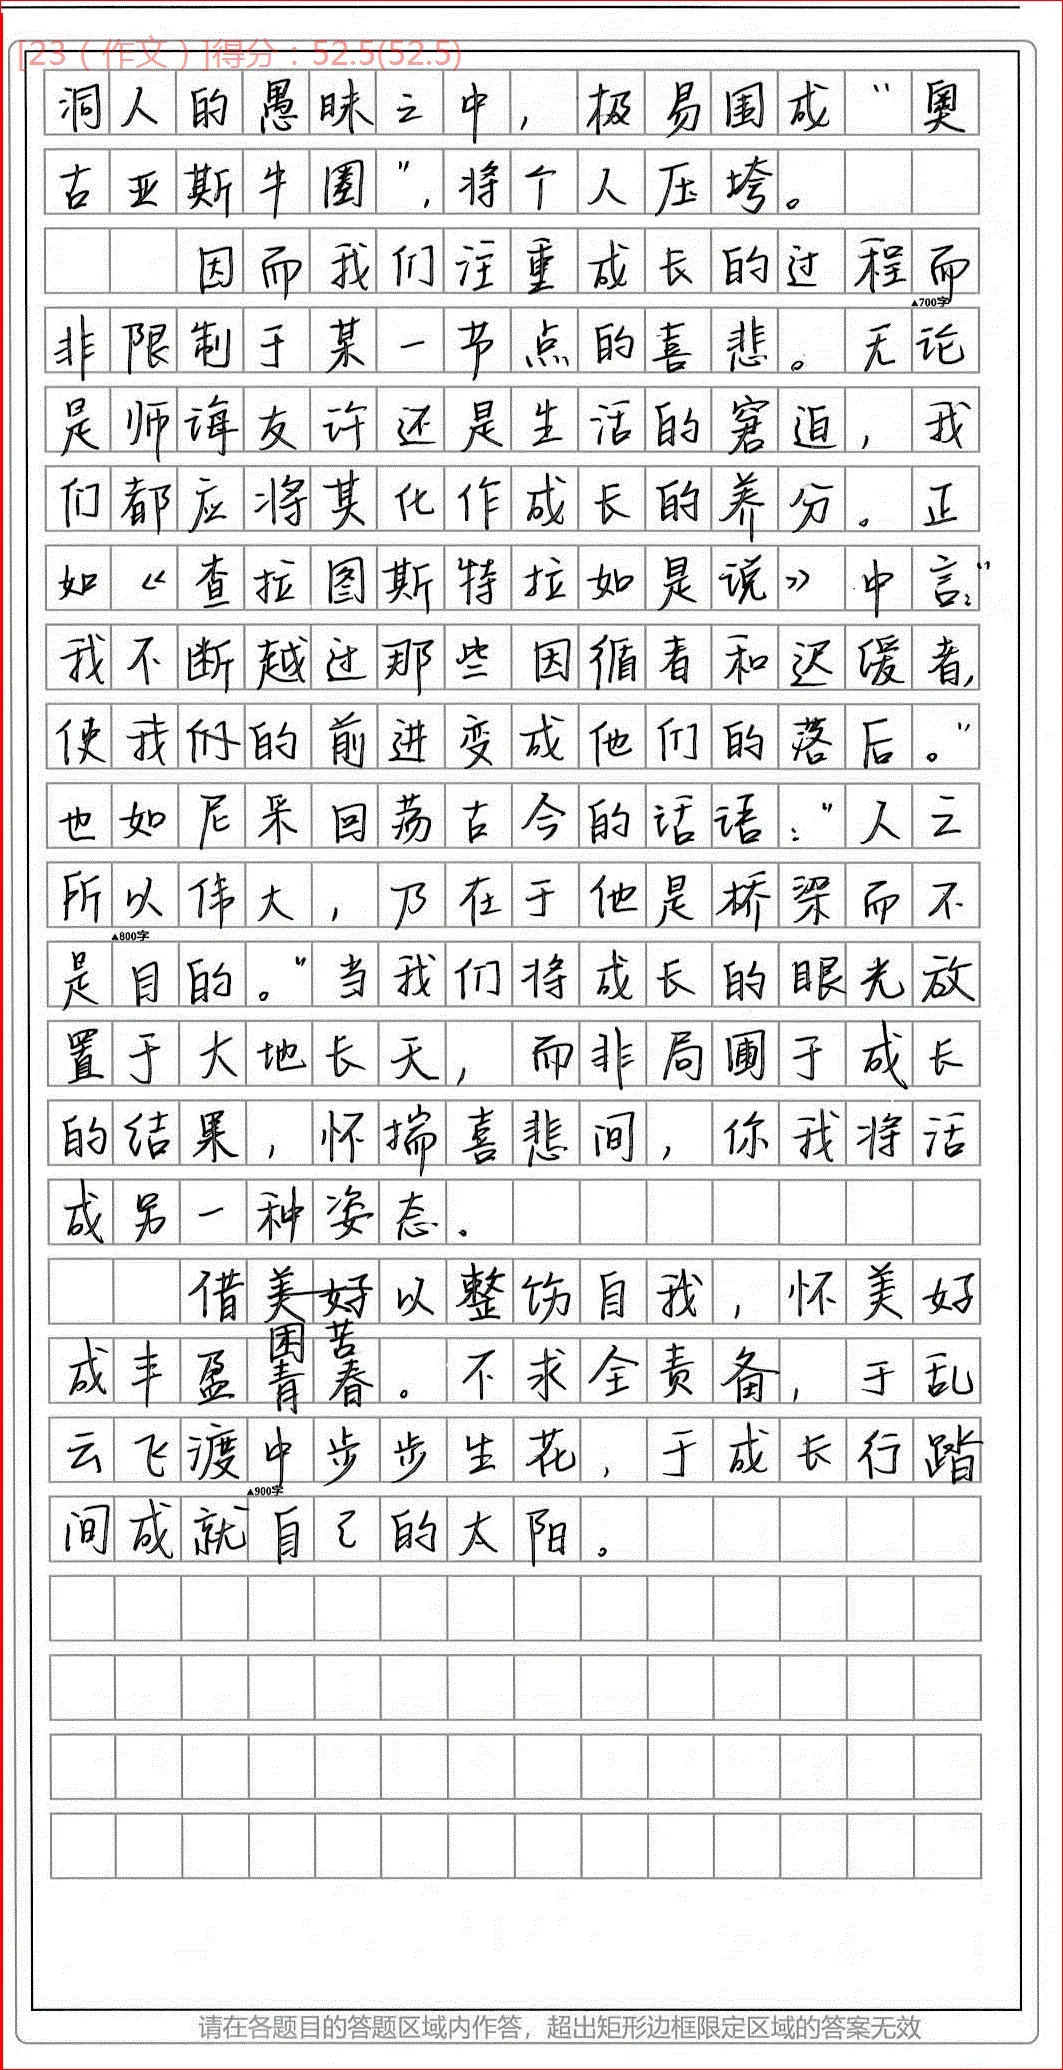 [23（作文）]得分：52.5(52.5)
洞人的愚昧之中，极易围成“奥
古亚斯牛圈”，将个人压垮。
因而我们注重成长的过程而
▲700字
非限制于某一节点的喜悲。无论
是师诲友许还是生活的窘迫，我
们都应将其化作成长的养分。正
如《查拉图斯特拉如是说》中言：“
我不断越过那些因循者和迟缓者，
使我们的前进变成他们的落后。”
也如尼采回荡古今的话语：“人之
所以伟大，乃在于他是桥梁而不
▲800字
是目的。”当我们将成长的眼光放
置于大地长天，而非局圃于成长
的结果，怀揣喜悲间，你我将活
成另一种姿态。
借美好以整饬自我，怀美好
困苦
成丰盈青春。不求全责备，于乱
云飞渡中步步生花，于成长行踏
▲900字
间成就自己的太阳。
请在各题目的答题区域内作答，超出矩形边框限定区域的答案无效